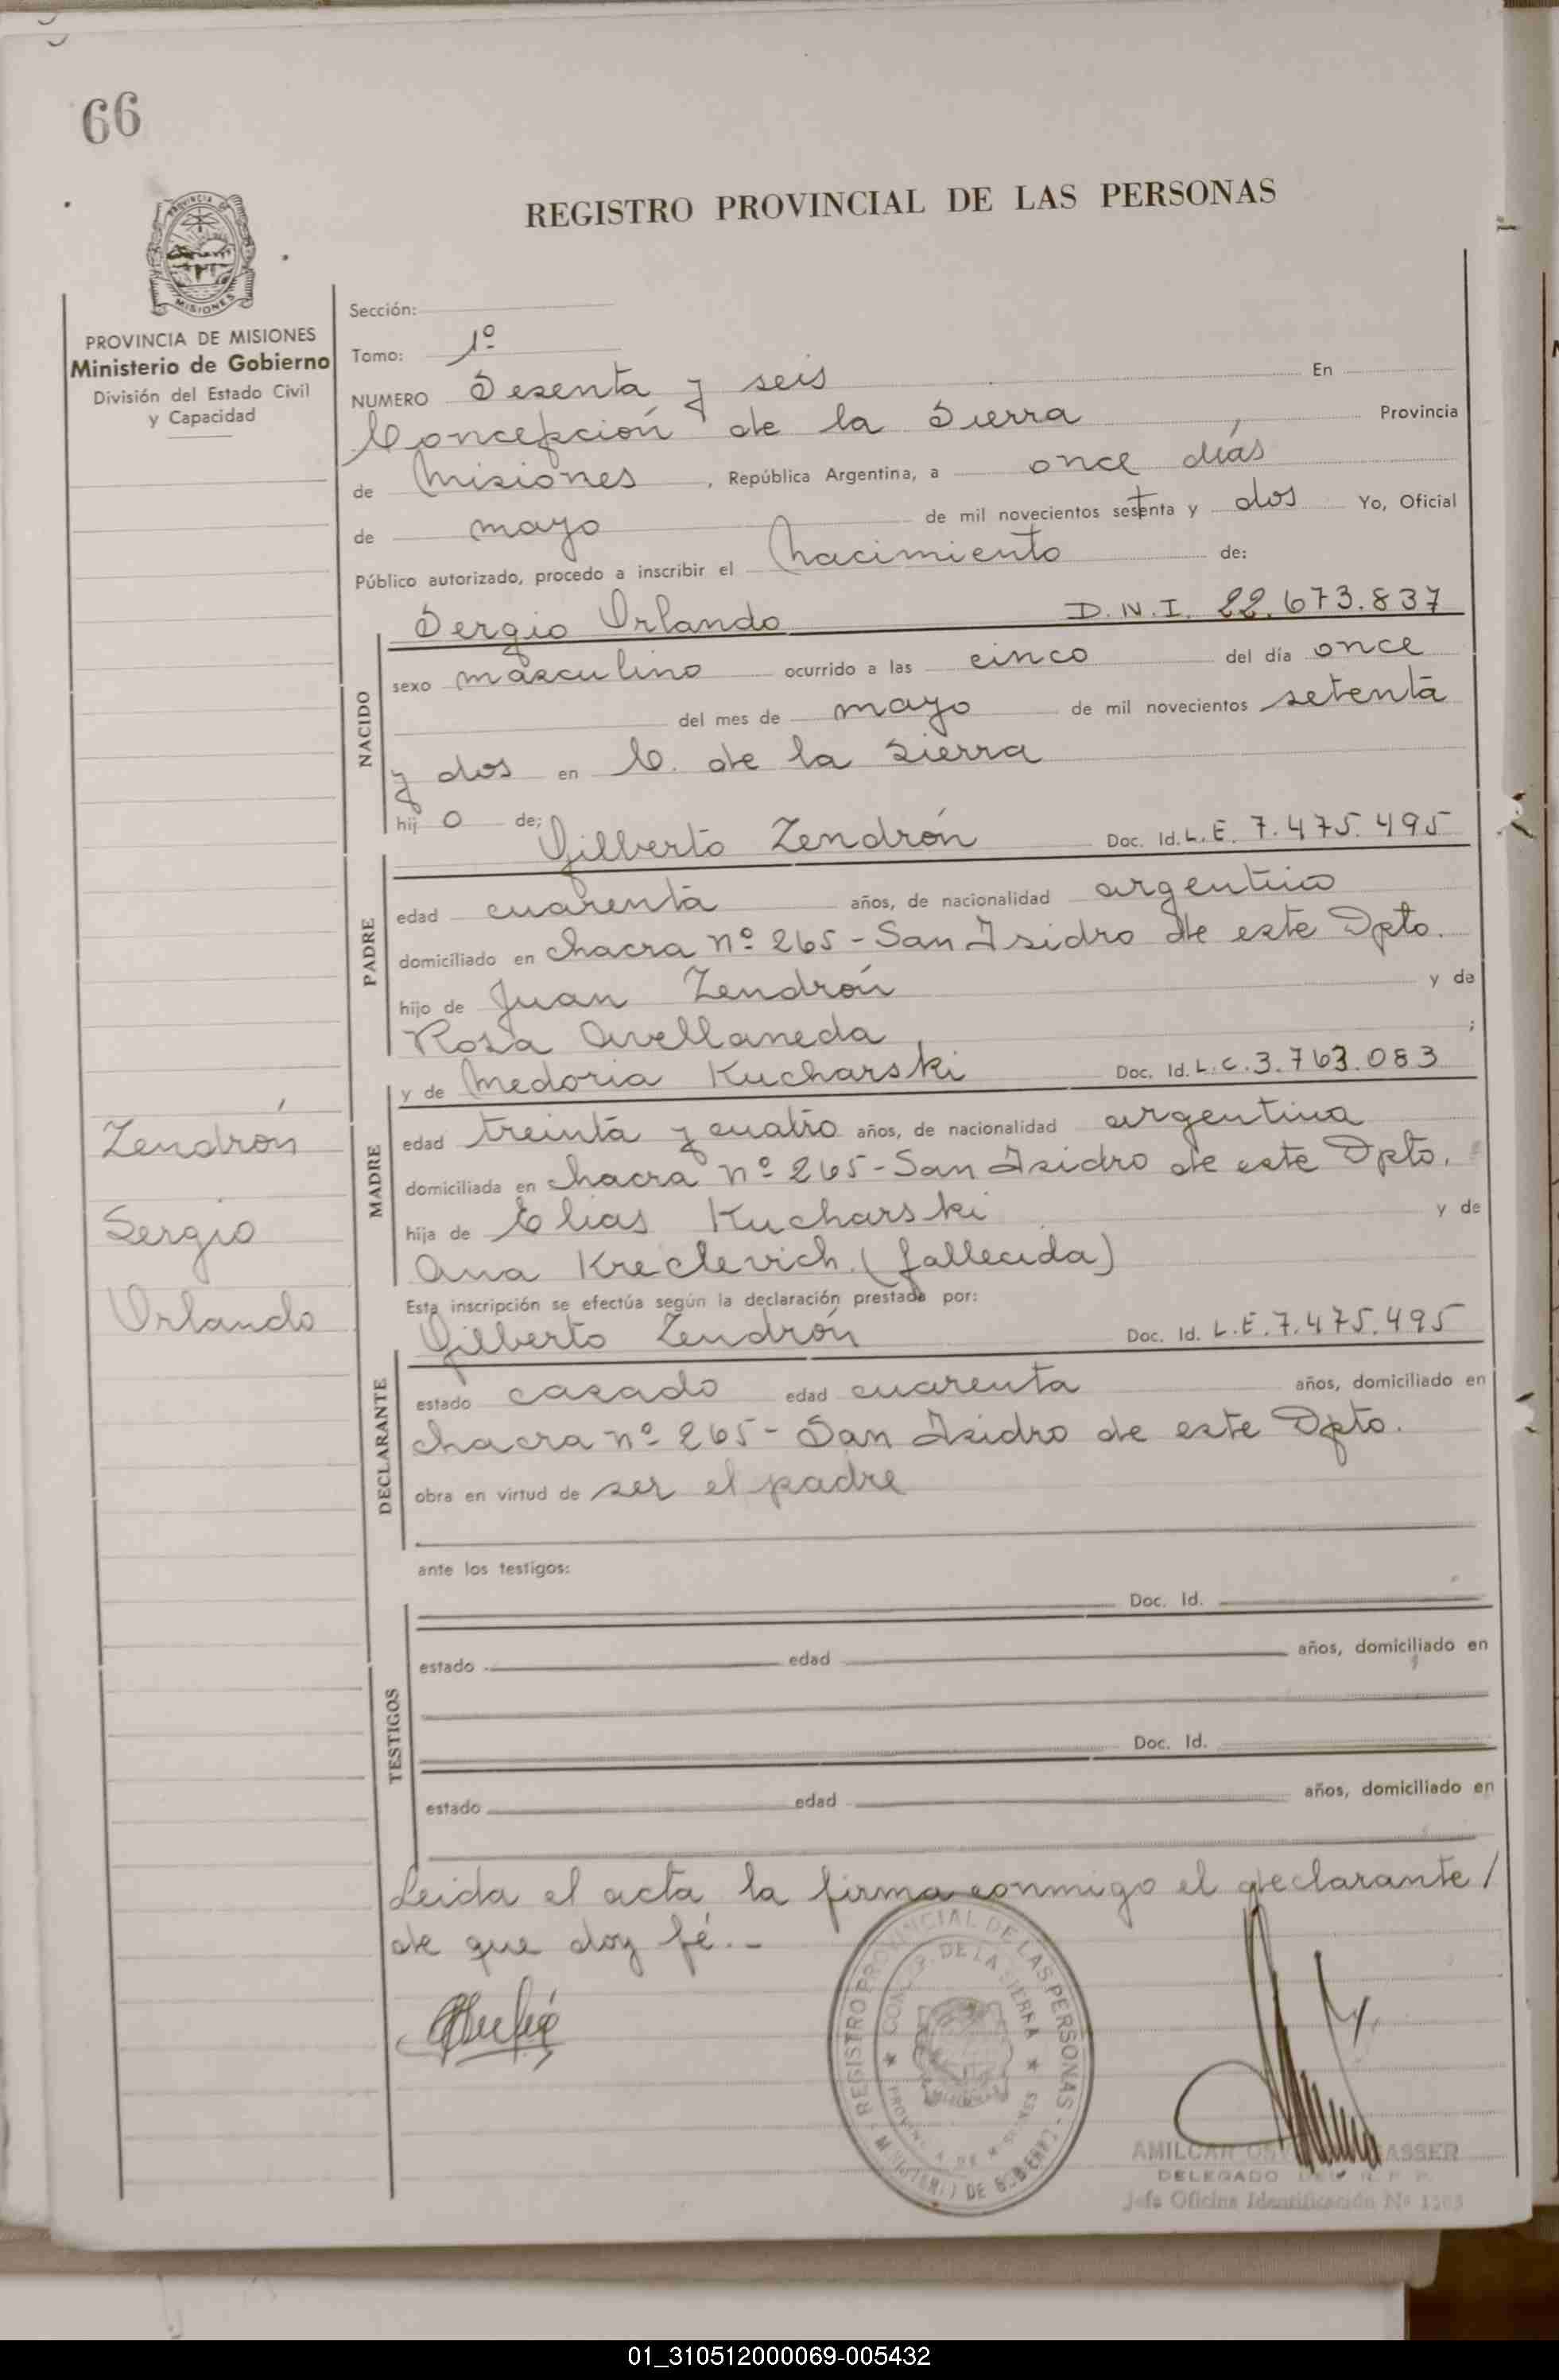 66
REGISTRO PROVINCIAL DE LAS PERSONAS
PROVINCIA DE MISIONES
Ministerio de Gobierno
División del Estado Civil
y Capacidad
Sección:
Tomo: 1º
NUMERO Sesenta y seis En
Concepción de la Sierra, Provincia
de Misiones, República Argentina, a once días
de mayo de mil novecientos setenta y dos Yo, Oficial
Público autorizado, procedo a inscribir el Nacimiento de:
NACIDO
Sergio Orlando D.N.I. 22.673.837
sexo masculino ocurrido a las cinco del día once
del mes de mayo de mil novecientos setenta
y dos en C. de la Sierra
hijo de: Gilberto Zendrón Doc. Id. L.E. 7.475.495
PADRE
edad cuarenta años, de nacionalidad argentino
domiciliado en chacra nº 265 - San Isidro de este Dpto.
hijo de Juan Zendrón y de
Rosa Avellaneda ;
y de Medoria Kucharski Doc. Id. L.C. 3.763.083
MADRE
edad treinta y cuatro años, de nacionalidad argentina
domiciliada en chacra nº 265 - San Isidro de este Dpto.
hija de Elias Kucharski y de
Ana Kreclevich (fallecida)
Zendrón
Sergio
Orlando
Esta inscripción se efectúa según la declaración prestada por:
Gilberto Zendrón Doc. Id. L.E. 7.475.495
DECLARANTE
estado casado edad cuarenta años, domiciliado en
chacra nº 265 - San Isidro de este Dpto.
obra en virtud de ser el padre
ante los testigos:
Doc. Id.
TESTIGOS
estado edad años, domiciliado en
Doc. Id.
estado edad años, domiciliado en
Leida el acta la firma conmigo el declarante/
de que doy fé.-
REGISTRO PROVINCIAL DE LAS PERSONAS - MINISTERIO DE GOBIERNO
CONCEP. DE LA SIERRA
PROVINCIA DE MISIONES
AMILCAR
DELEGADO DEL R. P. P.
Jefe Oficina Identificación Nº
01_310512000069-005432